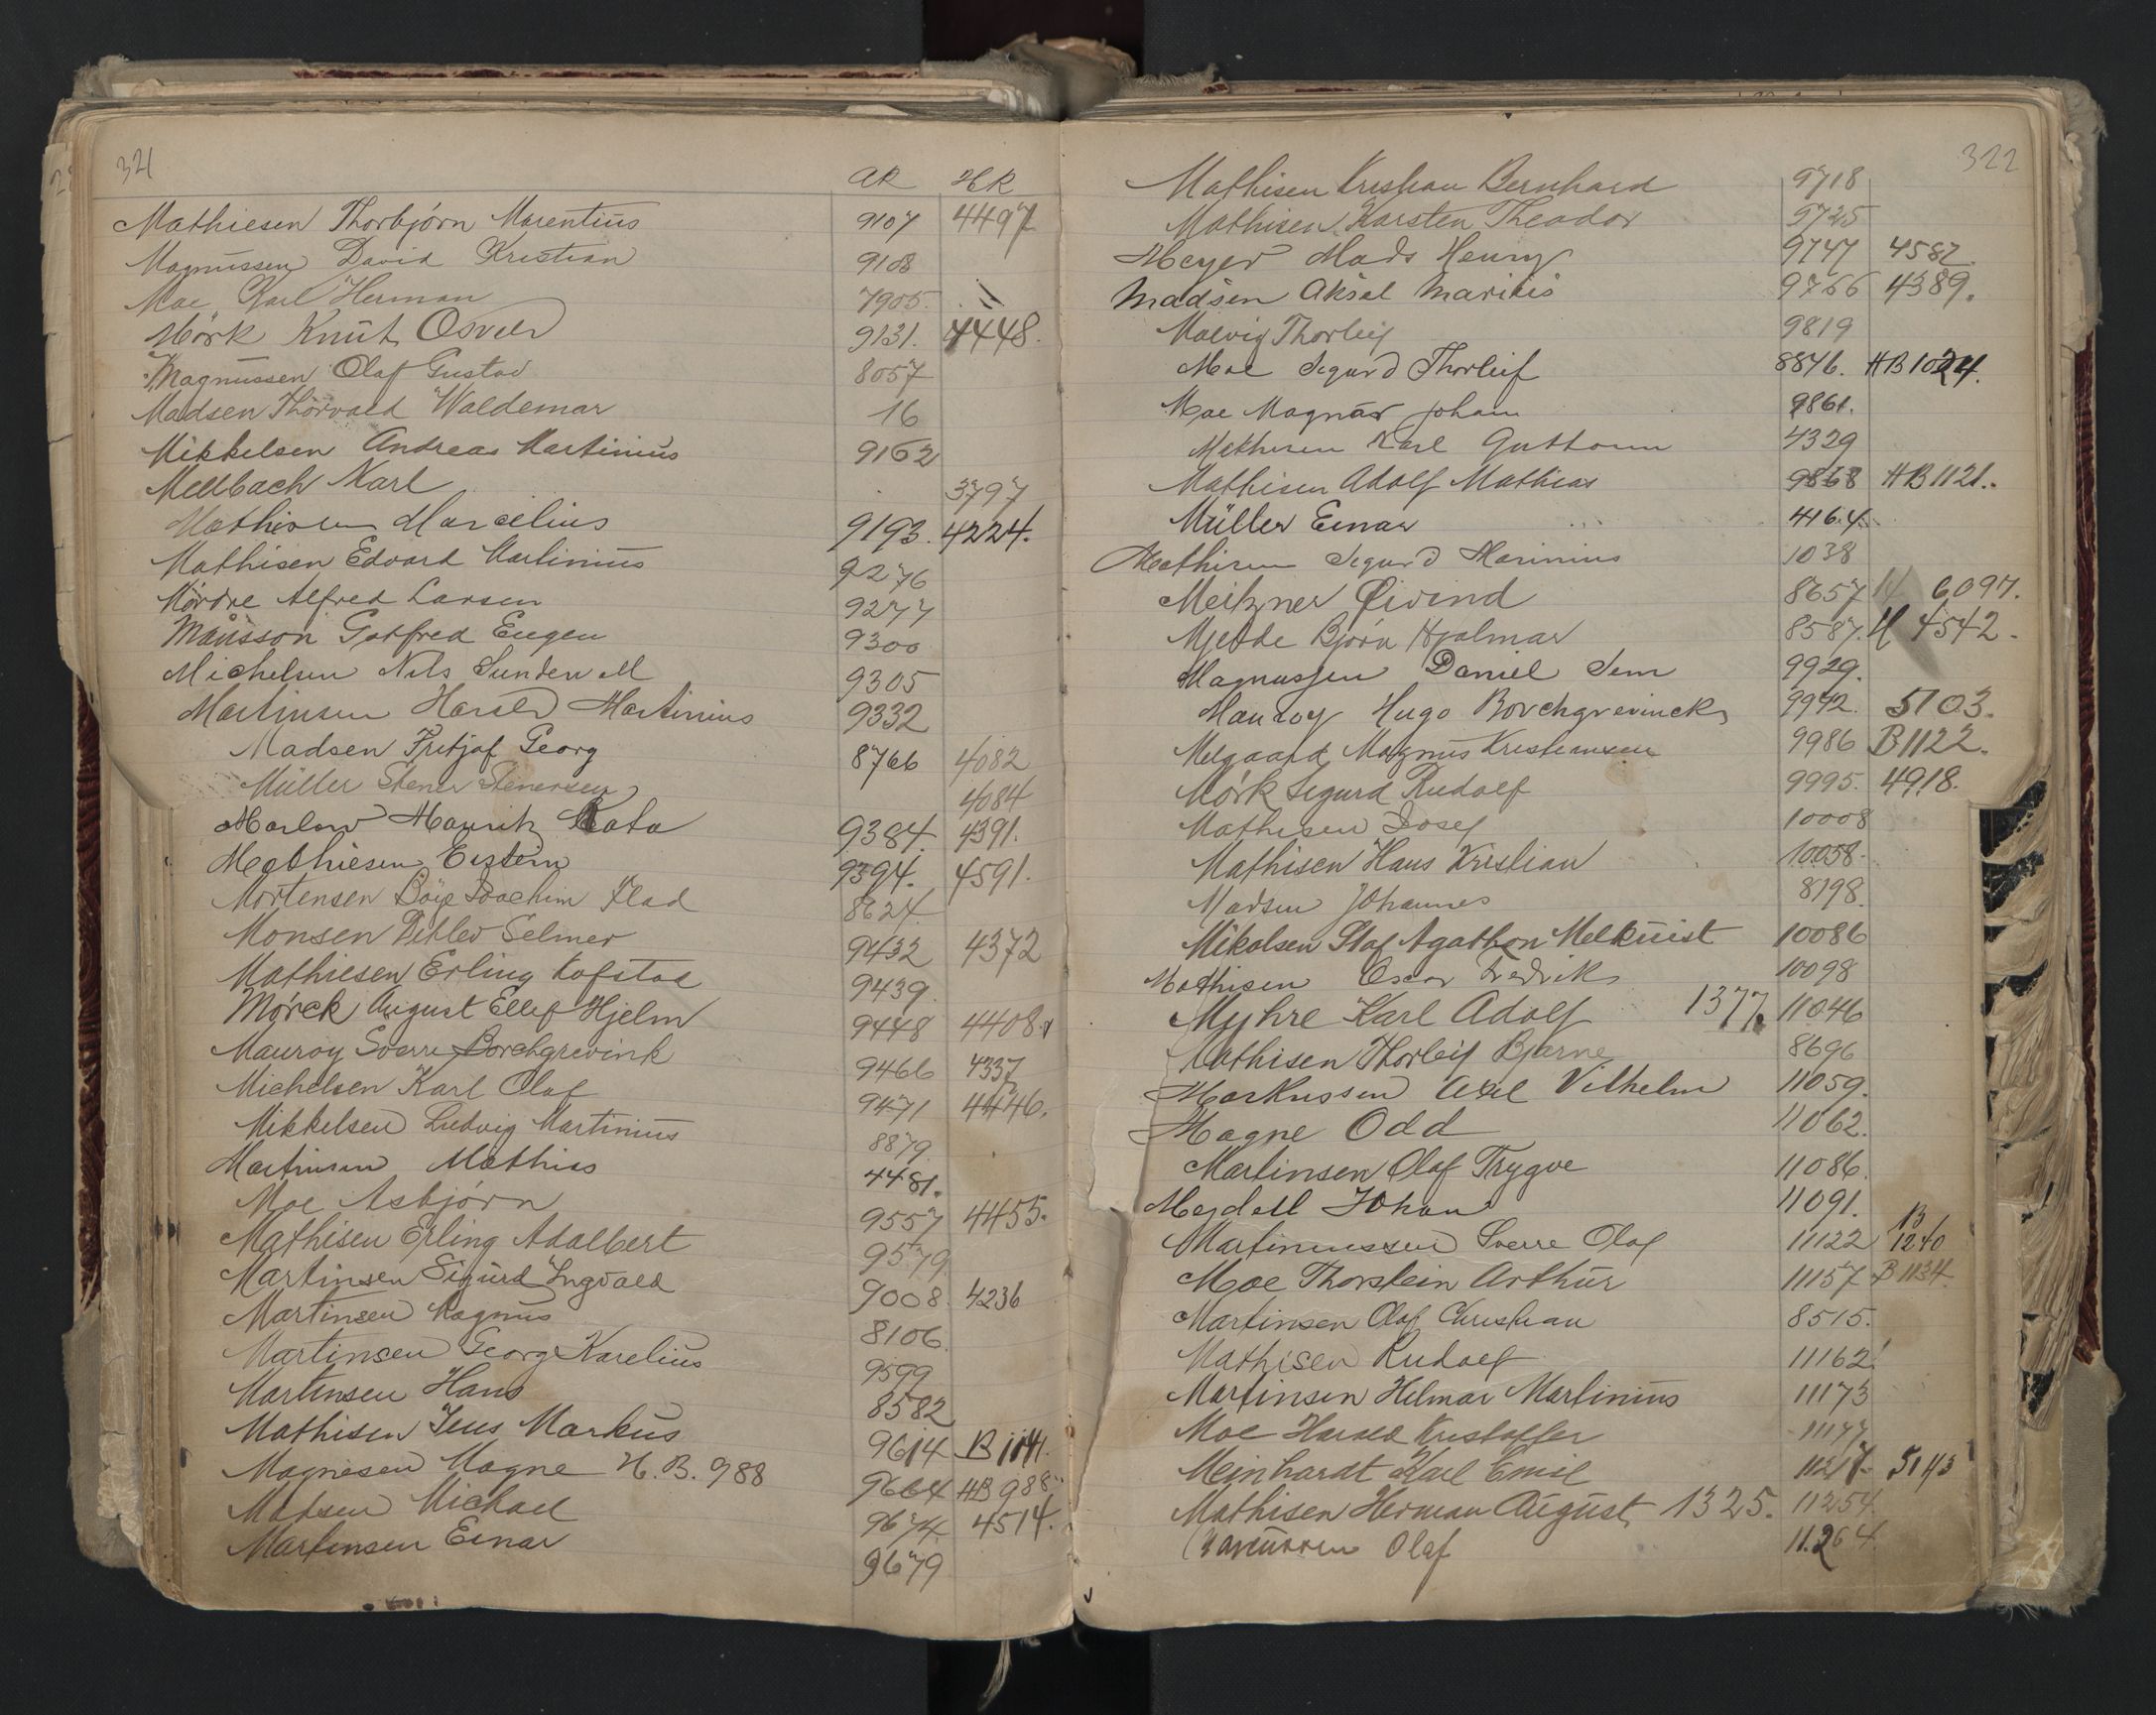 321
AR HR
Mathiesen Thorbjörn Marentius 9107 4497
Magnussen David Kristian 9108
Moe Karl Herman 7905.
Mörk Knut Osvald 9131. 4448.
Magnussen Olaf Gustav 8057
Madsen Thorvald Waldemar 16
Mikkelsen Andreas Martinius 9162
Mellbach Karl 3797
Mathisen Marcelius 9193. 4224.
Mathisen Edvard Martinius 9276
Mördre Alfred Larsen 9277
Månsson Gotfred Eugen 9300
Michelsen Nils Sunden M 9305
Martinsen Harald Martinius 9332
Madsen Fritjof Georg 8766 4082
Müller Stener Stenersen 4084
Marlow Mauritz 9384. 4391.
Mathiesen Eistein 9394. 4591.
Mortensen Böye Joachim Flad 8624
Monsen Detlev Selmer 9432 4372
Mathiesen Erling Kofstad 9439
Mörck August Ellef Hjelm 9448 4408
Mauroy Sverre Borchgrevink 9466 4337
Michelsen Karl Olaf 9471 4446.
Mikkelsen Ludvig Martinius 8879
Martinsen Mathias 4481.
Moe Asbjörn 9557 4455.
Mathisen Erling Adalbert 9579
Martinsen Sigurd Ingvald 9008 4236
Martinsen Magnus 8106
Martinsen Georg Karelius 9599
Martinsen Hans 8582
Mathisen Jens Markus 9614 B 1141.
Magnesen Magne H.B. 988 9664 HB 988
Madsen Michael 9674 4514.
Martinsen Einar 9679
322
Mathisen Kristian Bernhard 9718
Mathisen Karsten Theodor 9725
Meyer Mads Henry 9747 4582.
Madsen Aksel Maritis 9766 4389.
Malvig Thorleif 9819
Moe Sigurd Thorleif 8846. HB 1024.
Moe Magnar Johan 9861.
Mathisen Karl Guttorm 4329
Mathisen Adolf Mathias 9868 HB 1121.
Müller Einar 4164
Mathisen Sigurd Marinius 1038
Meitzner Öivind 8657 H 6097.
Mjelde Björn Hjalmar 8587. H 4542.
Magnussen Daniel Sem 9929.
Mauroy Hugo Borchgrevinck 9942. 5103.
Melgaard Magnus Kristiansen 9986 B 1122.
Mörk Sigurd Rudolf 9995. 4918.
Mathisen Josef 10008
Mathisen Hans Kristian 10058.
Madsen Johannes 8198.
Mikalsen Olaf Agathon Melkuist 10086
Mathisen Oscar Fredrik 10098
Myhre Karl Adolf 1377. 11046
Mathisen Thorleif Bjarne 8696
Markussen Axel Vilhelm 11059.
Magne Odd 11062.
Martinsen Olaf Trygve 11086
Megdell Johan 11091.
Martinussen Sverre Olaf 11122 B 1240
Moe Thorstein Arthur 11157 B 1134.
Martinsen Olaf Christian 8515.
Mathisen Rudolf 11162.
Martinsen Helmar Martinius 11173
Moe Harald Kristoffer 11177
Meinhardt Karl Emil 11217 5143
Mathisen Herman August 1325. 11254.
Olaf 11.264.